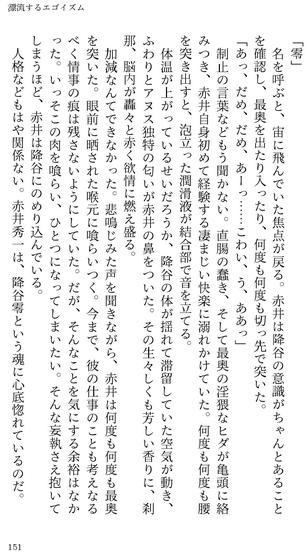 漂流するエゴイズム
「零」
　名を呼ぶと、宙に飛んでいた焦点が戻る。赤井は降谷の意識がちゃんとあること
を確認し、最奥を出たり入ったり、何度も何度も切っ先で突いた。
「あっ、だめ、だめ、あーっ……こわい、う、ああっ」
　制止の言葉などもう聞かない。直腸の蠢き、そして最奥の淫猥なヒダが亀頭に絡
みつき、赤井自身初めて経験する凄まじい快楽に溺れかけていた。何度も何度も腰
を突き出すと、泡立った潤滑液が結合部で音を立てる。
　体温が上がっているせいだろうか、降谷の体が揺れて滞留していた空気が動き、
ふわりとアヌス独特の匂いが赤井の鼻をついた。その生々しくも芳しい香りに、刹
那、脳内が轟々と赤く欲情に燃え盛る。
　加減なんてできなかった。悲鳴じみた声を聞きながら、赤井は何度も何度も最奥
を突いた。眼前に晒された喉元に喰らいつく。今まで、彼の仕事のことも考えなる
べく情事の痕は残さないようにしていた。だが、そんなことを気にする余裕はなか
った。いっそこの肉を喰らい、ひとつになってしまいたい。そんな妄執さえ抱いて
しまうほど、赤井は降谷にのめり込んでいる。
　人格などもはや関係ない。赤井秀一は、降谷零という魂に心底惚れているのだ。
151